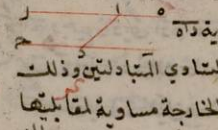 ر ا ه
ية د ا ه
ح
لتساوي المتبادلتين وذلك
الخارجة مساوية لمقابلتها